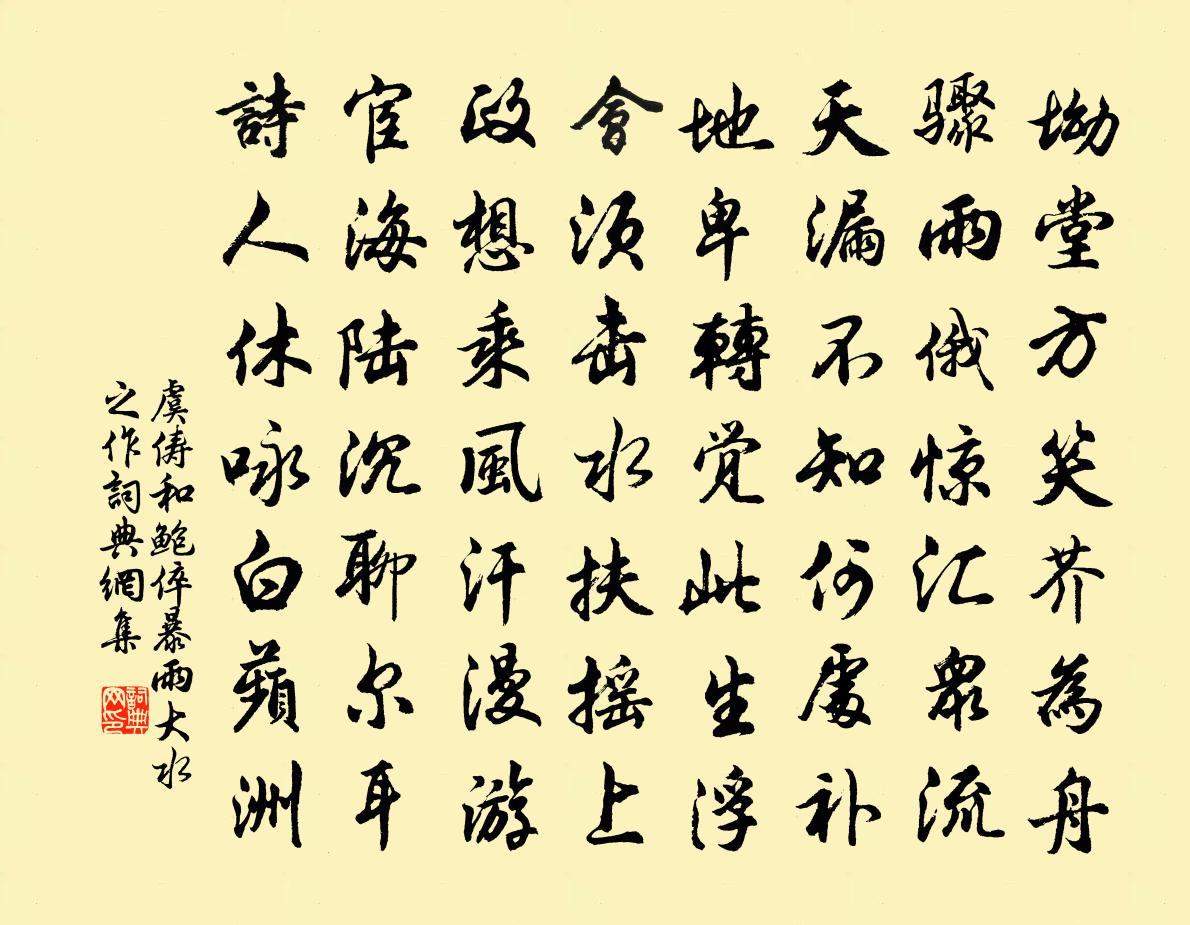 坳堂方笑芥為舟
骤雨俄惊汇眾流
天漏不知何處补
地卑轉觉此生浮
會须击水扶摇上
政想乘風汗漫游
宦海陆沉聊尔耳
詩人休咏白蘋洲
虞俦和鲍倅暴雨大水
之作詞典網集
詞典网印